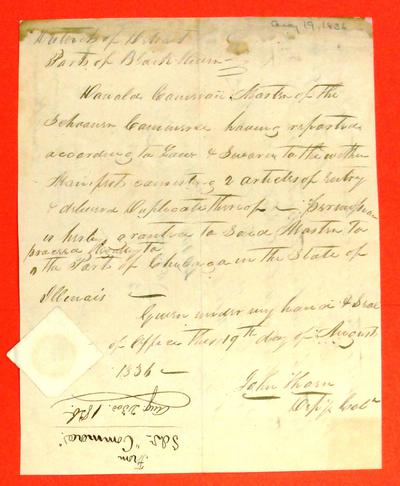 Aug 19, 1836
District of Detroit
Port of Black River
Donald Cameron Master of the
Schooner Commerce having reported
according to Law & Sworn to the within
Manifest consisting 2 articles of Entry
& delivered Duplicate thereof — Permission
is hereby granted to Said Master to
proceed
the Port of Chicago in the State of
Illenois —
Given under my hand & Seal
of Office this 19th day of August
1836 —
John Thorn
Dep Colr
From
Schr "Commerce"
Aug